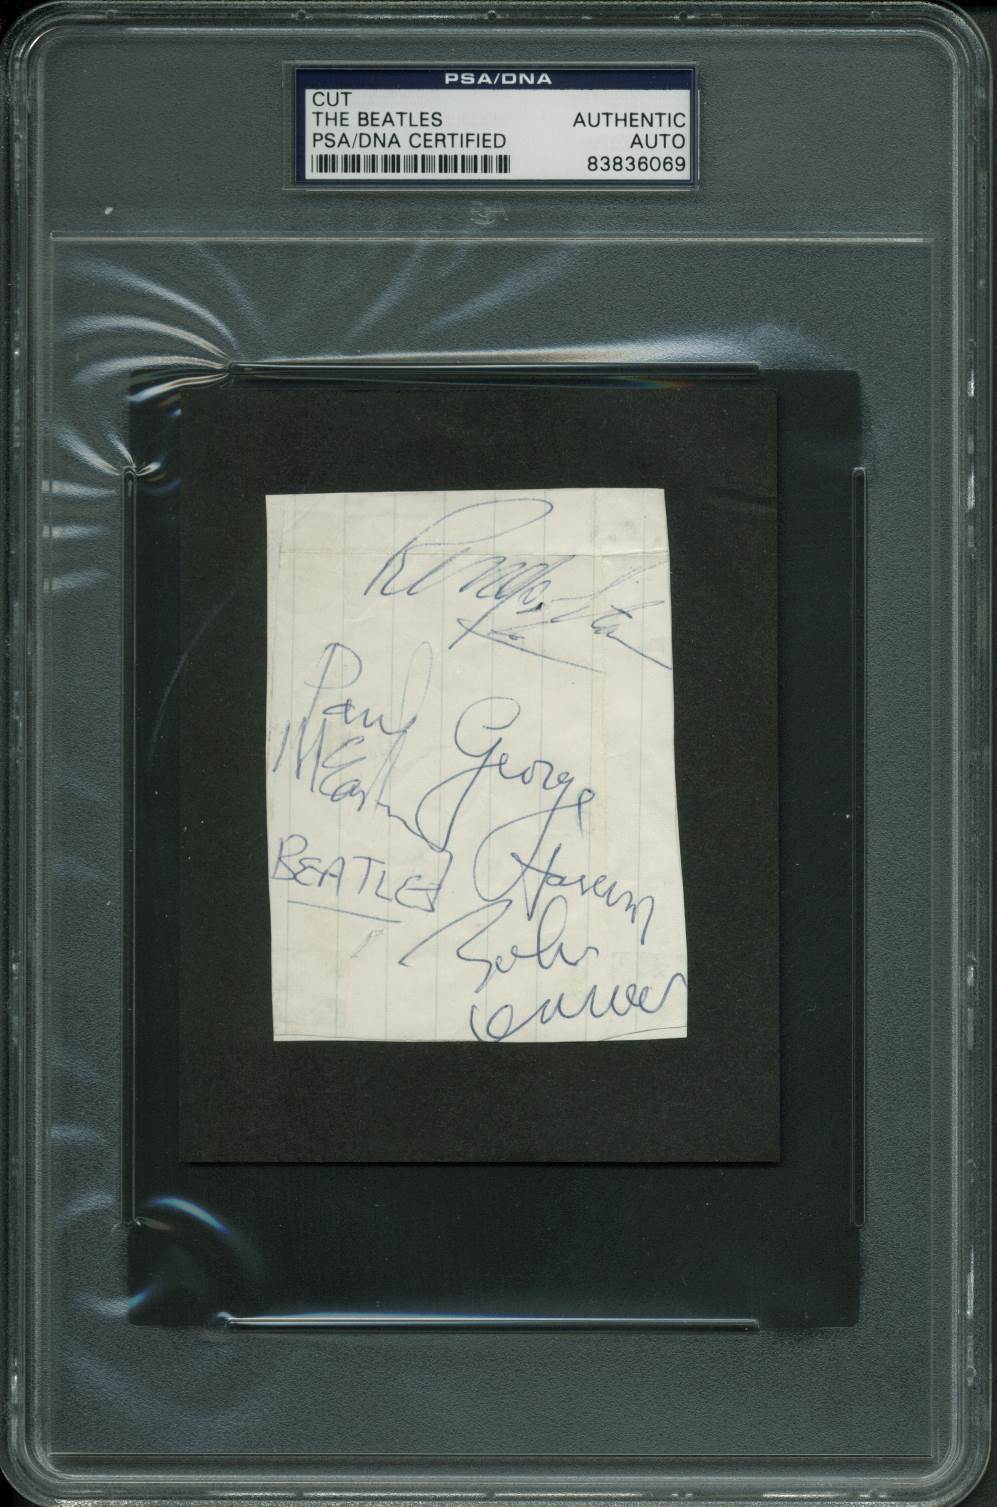 PSA/DNA
CUT
THE BEATLES
PSA/DNA CERTIFIED
AUTHENTIC
AUTO
83836069
Ringo Starr
Paul
McCartney
George
Harrison
BEATLES
John
Lennon